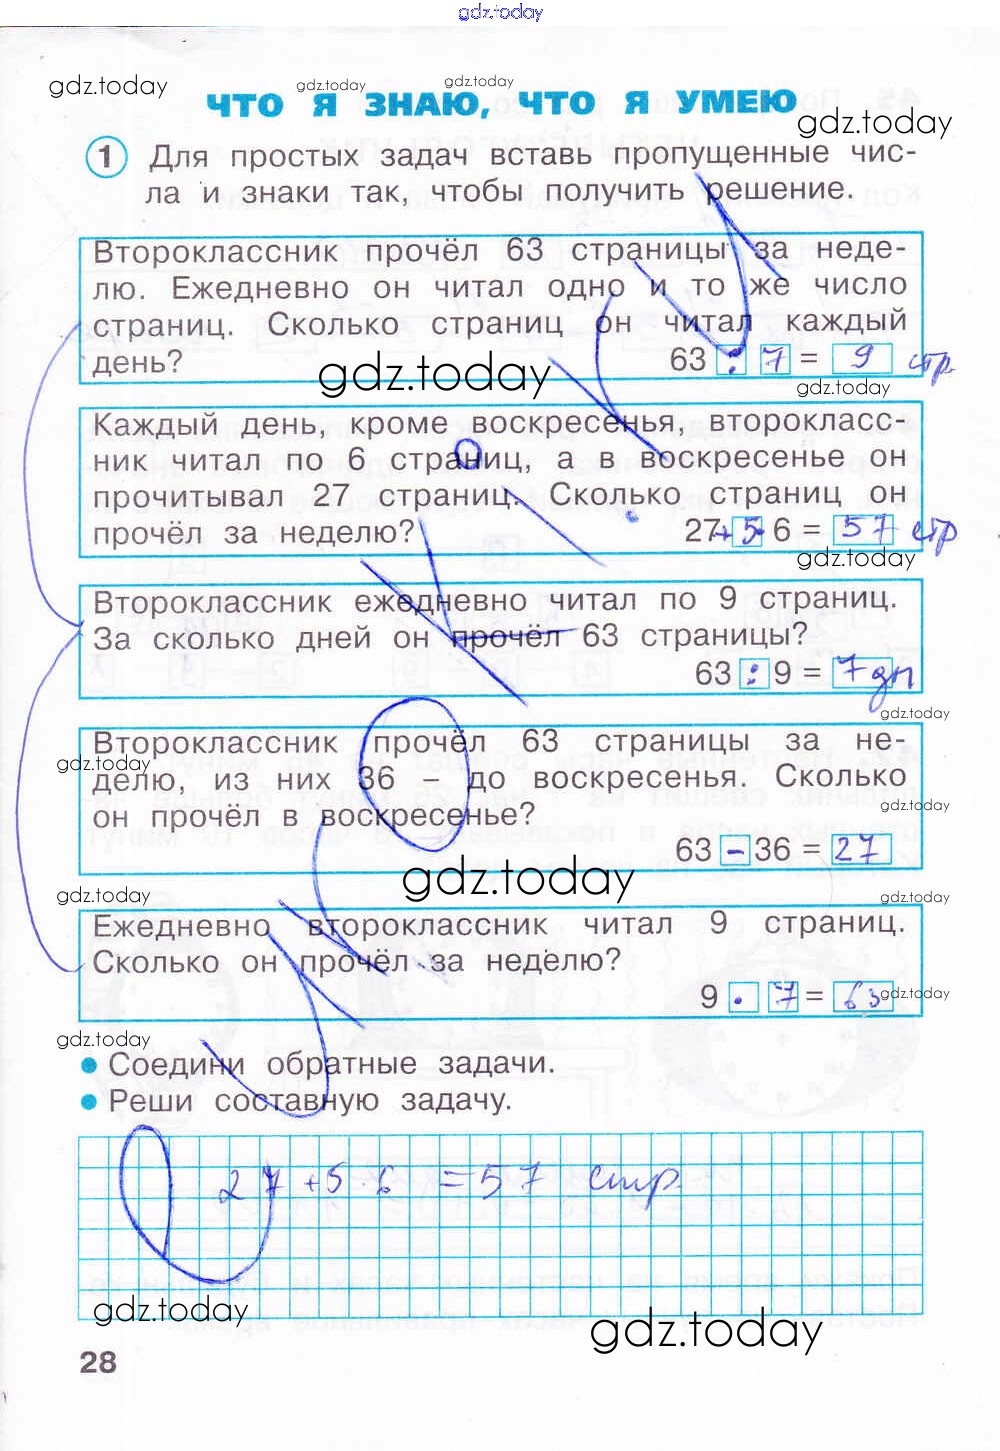 gdz.today
gdz.today
gdz.today
gdz.today
ЧТО Я ЗНАЮ, ЧТО Я УМЕЮ
gdz.today
1 Для простых задач вставь пропущенные чис-
ла и знаки так, чтобы получить решение.
Второклассник прочёл 63 страницы за неде-
лю. Ежедневно он читал одно и то же число
страниц. Сколько страниц он читал каждый
день? 63 : 7 = 9 стр
gdz.today
gdz.today
Каждый день, кроме воскресенья, второкласс-
ник читал по 6 страниц, а в воскресенье он
прочитывал 27 страниц. Сколько страниц он
прочёл за неделю? 27 + 5 · 6 = 57 стр
gdz.today
Второклассник ежедневно читал по 9 страниц.
За сколько дней он прочёл 63 страницы?
63 : 9 = 7 дн
gdz.today
Второклассник прочёл 63 страницы за не-
gdz.today
делю, из них 36 – до воскресенья. Сколько
gdz.today
он прочёл в воскресенье?
63 – 36 = 27
gdz.today
gdz.today
gdz.today
Ежедневно второклассник читал 9 страниц.
Сколько он прочёл за неделю?
9 · 7 = 63
gdz.today
gdz.today
• Соедини обратные задачи.
• Реши составную задачу.
27 + 5 · 6 = 57 стр.
gdz.today
gdz.today
28